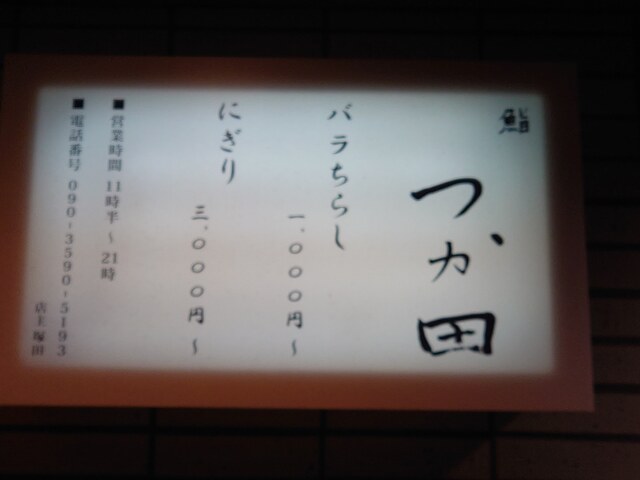 鮨
つか田
バラちらし
一、〇〇〇円～
にぎり
三、〇〇〇円～
■営業時間 11時半～21時
■電話番号 090-3590-5193
店主塚田